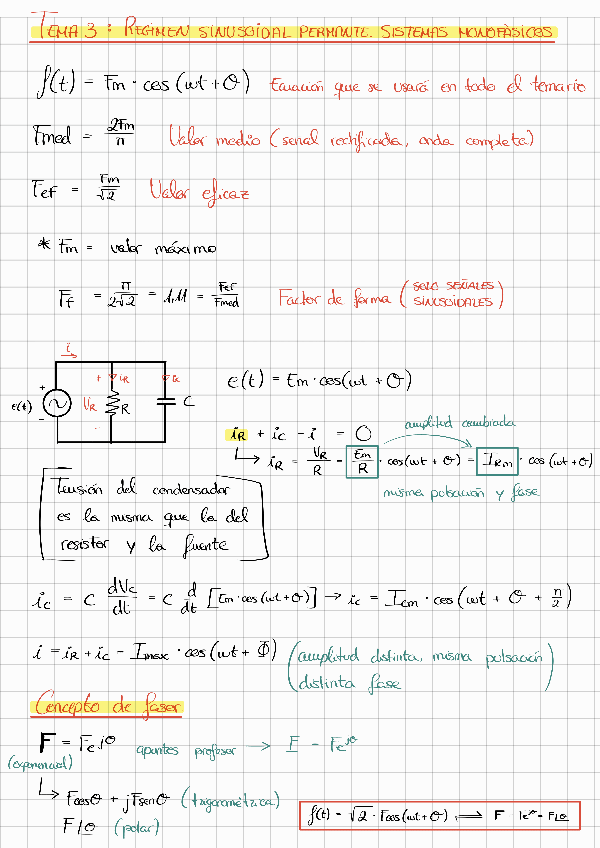 TEMA 3: REGIMEN SINUSOIDAL PERMANTE. SISTEMAS MONOFÁSICOS
f(t) = Fm · cos (wt + θ) Ecuación que se usará en todo el temario
Fmed = 2Fm/π Valor medio (señal rectificada, onda completa)
Fef = Fm/√2 Valor eficaz
* Fm = valor máximo
Ff = π/2√2 = 1,11 = Fef/Fmed Factor de forma (SOLO SEÑALES SINUSOIDALES)
i
+ iR
ic
+
e(t)
VR
R
C
-
e(t) = Em · cos(wt + θ)
iR + ic - i = 0
amplitud cambiada
↳ iR = VR/R = Em/R · cos(wt + θ) = IRm · cos(wt + θ)
misma pulsación y fase
Tensión del condensador
es la misma que la del
resistor y la fuente
ic = C dVc/dt = C d/dt [Em · cos(wt + θ)] → ic = Icm · cos(wt + θ + π/2)
i = iR + ic = Imax · cos(wt + Φ) (amplitud distinta, misma pulsación
distinta fase)
Concepto de fasor
F = Fe^jθ apuntes profesor → F = Fe^jθ
(exponencial)
↳ Fcosθ + jFsenθ (trigonométrica)
F∠θ (polar)
f(t) = √2 · Fcos(wt + θ) ⟹ F = Fe^jθ = F∠θ